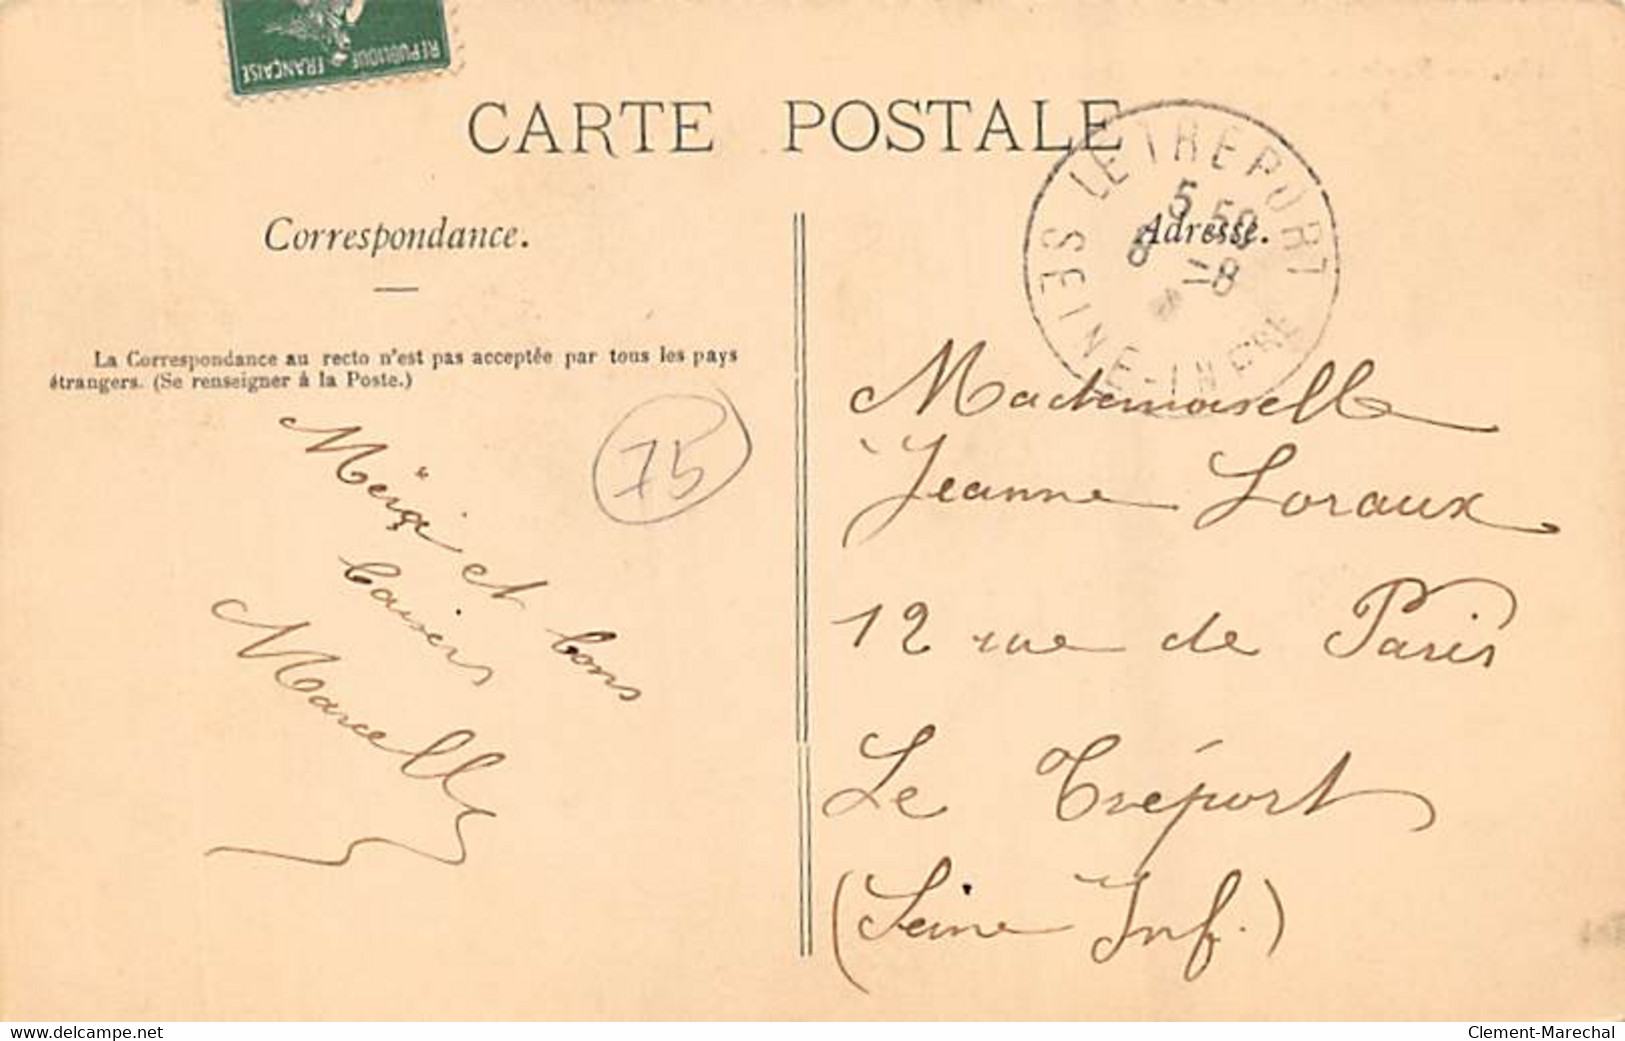 RÉPUBLIQUE FRANÇAISE
CARTE POSTALE
LE TREPORT
5 50
8 -8
SEINE-INFRE
Correspondance.
Adresse.
La Correspondance au recto n'est pas acceptée par tous les pays
étrangers. (Se renseigner à la Poste.)
75
et bons
baisers
Marcelle
Mademoiselle
Jeanne Loraux
12 rue de Paris
Le Tréport
(Seine Inf.)
www.delcampe.net
Clement-Marechal